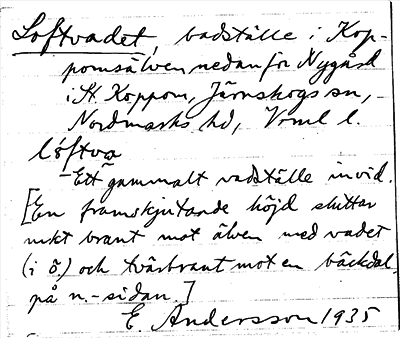 Loftvadet, vadställe i Kop-
pomsälven nedanför Nygård
i St. Koppom, Järnskogs sn,
Nordmarks hd, Vrml l.
löftva
– Ett gammalt vadställe invid.
[En framskjutande höjd sluttar
mkt brant mot älven med vadet
(i ö.) och tvärbrant mot en bäckdal
på n.-sidan.]
E. Andersson 1935